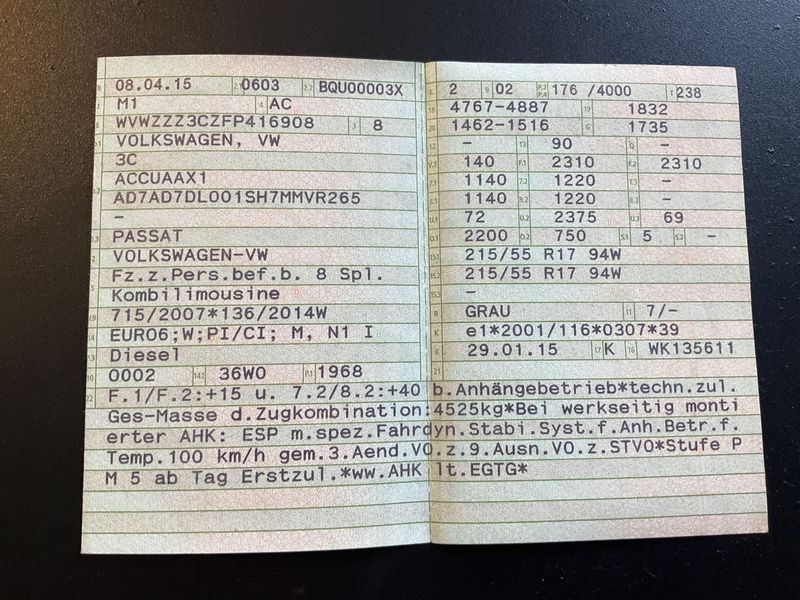 B 08.04.15 2.1 0603 2.2 BQU00003X
J M1 4 AC
E WVWZZZ3CZFP416908 3 8
D.1 VOLKSWAGEN, VW
3C
D.2 ACCUAAX1
AD7AD7DL001SH7MMVR265
–
D.3 PASSAT
2 VOLKSWAGEN-VW
5 Fz.z.Pers.bef.b. 8 Spl.
Kombilimousine
V.9 715/2007*136/2014W
14 EURO6;W;PI/CI; M, N1 I
P.3 Diesel
10 0002 14.1 36W0 P.1 1968
L 2 9 02 P.2 P.4 176 /4000 T 238
18 4767-4887 19 1832
20 1462-1516 G 1735
12 – 13 90 Q –
V.7 140 F.1 2310 F.2 2310
7.1 1140 7.2 1220 7.3 –
8.1 1140 8.2 1220 8.3 –
U.1 72 U.2 2375 U.3 69
O.1 2200 O.2 750 S.1 5 S.2 –
15.1 215/55 R17 94W
15.2 215/55 R17 94W
15.3 –
R GRAU 11 7/–
K e1*2001/116*0307*39
6 29.01.15 17 K 16 WK135611
21
22 F.1/F.2:+15 u. 7.2/8.2:+40 b.Anhängebetrieb*techn.zul.
Ges-Masse d.Zugkombination:4525kg*Bei werkseitig monti
erter AHK: ESP m.spez.Fahrdyn.Stabi.Syst.f.Anh.Betr.f.
Temp.100 km/h gem.3.Aend.VO.z.9.Ausn.VO.z.STVO*Stufe P
M 5 ab Tag Erstzul.*ww.AHK lt.EGTG*